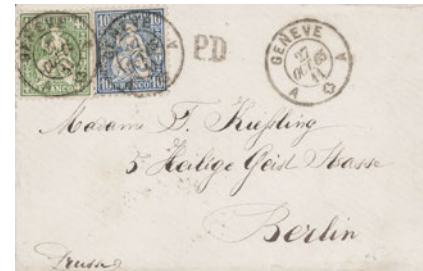 GENEVE A
10 FRANCO 10
PD
GENEVE
27
OCT 65
11
A
Madame F. Kießling
5 Heilige Geist Strasse
Berlin
Prusse